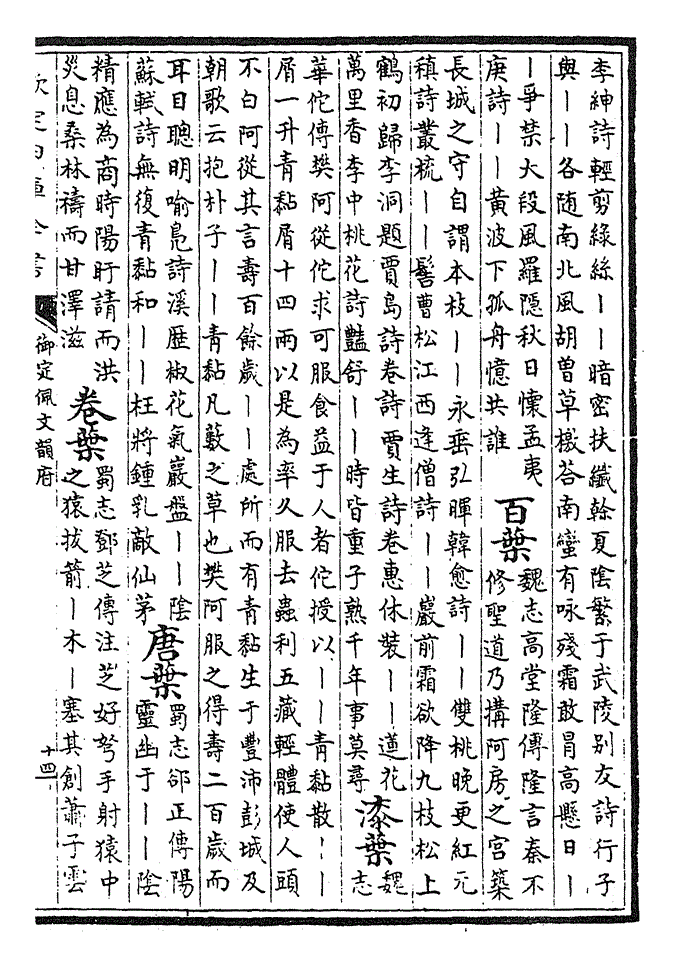 李紳詩輕剪綠絲丨丨暗密扶纖榦夏陰繁于武陵别友詩行子
與丨丨各隨南北風胡曾草檄荅南蠻有咏殘霜敢冒高懸日丨
丨爭禁大段風羅隱秋日懷孟夷
庚詩丨丨黄波下孤舟憶共誰
百葉
魏志高堂隆傳隆言秦不
修聖道乃搆阿房之宫築
長城之守自謂本枝丨丨永垂弘暉韓愈詩丨丨雙桃晚更紅元
稹詩叢梳丨丨髻曹松江西逢僧詩丨丨巖前霜欲降九枝松上
鶴初歸李洞題賈島詩卷詩賈生詩卷惠休裝丨丨蓮花
萬里香李中桃花詩豔舒丨丨時皆重子熟千年事莫尋
漆葉
魏
志
華佗傳樊阿從佗求可服食益于人者佗授以丨丨青黏散丨丨
屑一升青黏屑十四兩以是為率久服去蟲利五藏輕體使人頭
不白阿從其言壽百餘歲丨丨處所而有青黏生于豐沛彭城及
朝歌云抱朴子丨丨青黏凡藪之草也樊阿服之得壽二百歲而
耳目聰明喻鳧詩溪歴椒花氣巖盤丨丨陰
蘇軾詩無復青黏和丨丨枉將鍾乳敵仙茅
唐葉
蜀志郤正傳陽
靈幽于丨丨陰
精應為商時陽盱請而洪
災息桑林禱而甘澤滋
卷葉
蜀志鄧芝傳注芝好弩手射猿中
之猿拔箭丨木丨塞其創蕭子雲
欽定四庫全書
御定佩文韻府
十四